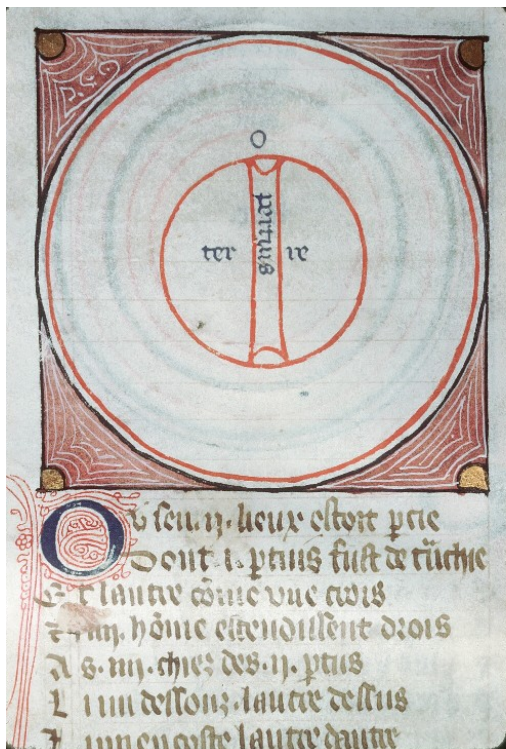 O
ter re
OU sen .ii. lieux estoit pcie
Dont .i. ptuis fust de
Et lautre cõme vne crois
.iiii. hõme estendissent drois
As .iiii. chiez des .ii. ptus
L i uns dessouz lautre dessus
en coste lautre dautre